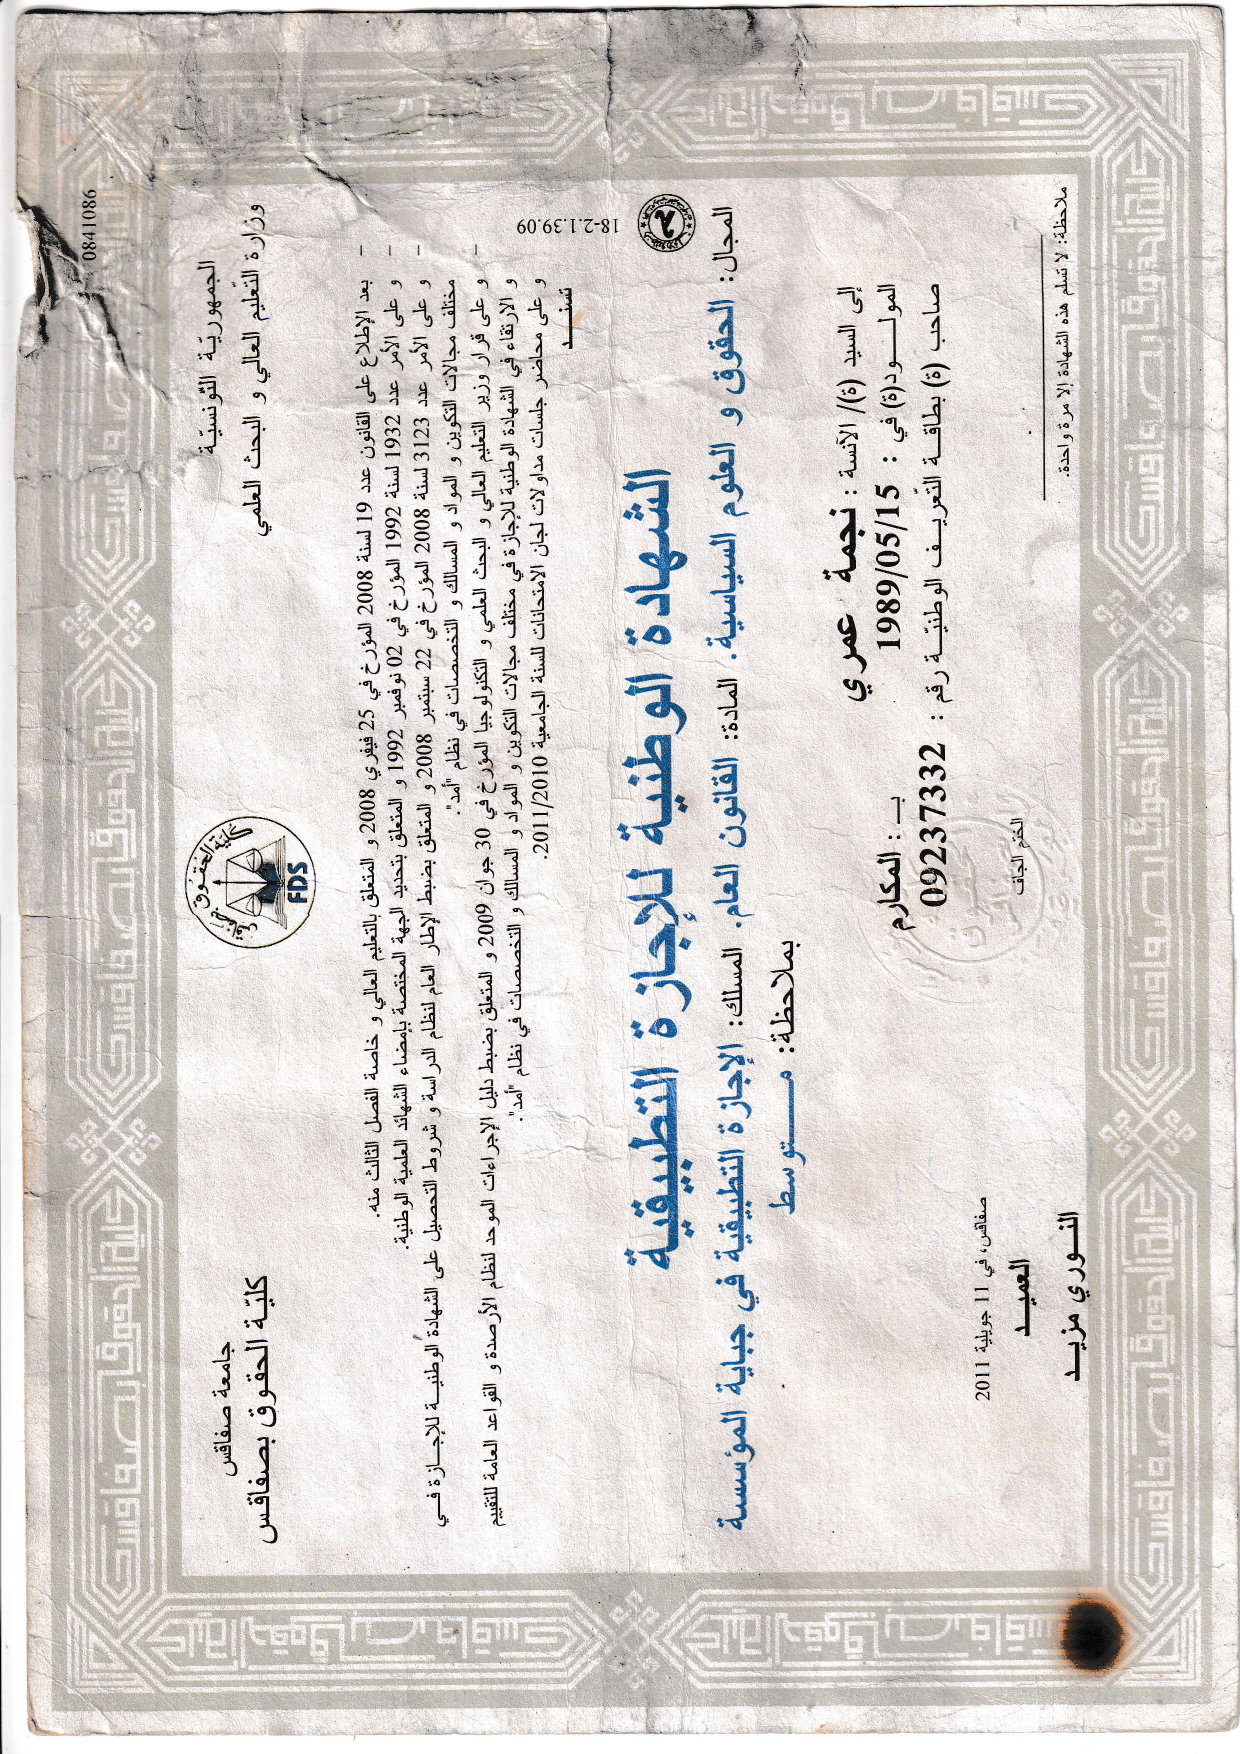 0841086
الجمهوريّة التّونسيّة
وزارة التّعليم العالي و البحث العلمي
كليّة الحقوق
بصفاقس
FDS
جامعة صفاقس
كليّة الحقوق بصفاقس
- بعد الإطلاع على القانون عدد 19 لسنة 2008 المؤرخ في 25 فيفري 2008 و المتعلق بالتعليم العالي و خاصة الفصل الثالث منه.
- و على الأمر عدد 1932 لسنة 1992 المؤرخ في 02 نوفمبر 1992 و المتعلق بتحديد الجهة المختصة بإمضاء الشهائد العلمية الوطنية.
- و على الأمر عدد 3123 لسنة 2008 المؤرخ في 22 سبتمبر 2008 و المتعلق بضبط الإطار العام لنظام الدراسة و شروط التحصيل على الشهادة الوطنيـــة للإجـــازة فـــي
مختلف مجالات التكوين و المواد و المسالك و التخصصات في نظام "أمد".
- و على قرار وزير التعليم العالي و البحث العلمي و التكنولوجيا المؤرخ في 30 جوان 2009 و المتعلق بضبط دليل الإجراءات الموحد لنظام الأرصدة و القواعد العامة للتقييم
و الارتقاء في الشهادة الوطنية للإجازة في مختلف مجالات التكوين و المواد و المسالك و التخصصات في نظام "أمد".
و على محاضر جلسات مداولات لجان الامتحانات للسنة الجامعية 2011/2010.
تسنــــد
18-2.1.39.09
الشهادة الوطنية للإجازة التطبيقية
المجال: الحقوق و العلوم السياسية. المادة: القانون العام. المسلك: الإجازة التطبيقية في جباية المؤسسة
بملاحظة: متوسط
إلى السيد (ة)/ الآنسة : نجمة عمري
المولـــود(ة) في : 1989/05/15 بـ : المكارم
صاحب (ة) بطاقـة التّعريـف الوطنيّـة رقم : 09237332
صفاقس، في 11 جويلية 2011
الختم الجاف
العميـــد
النــوري مزيــد
ملاحظة: لا تسلم هذه الشهادة إلا مرة واحدة.